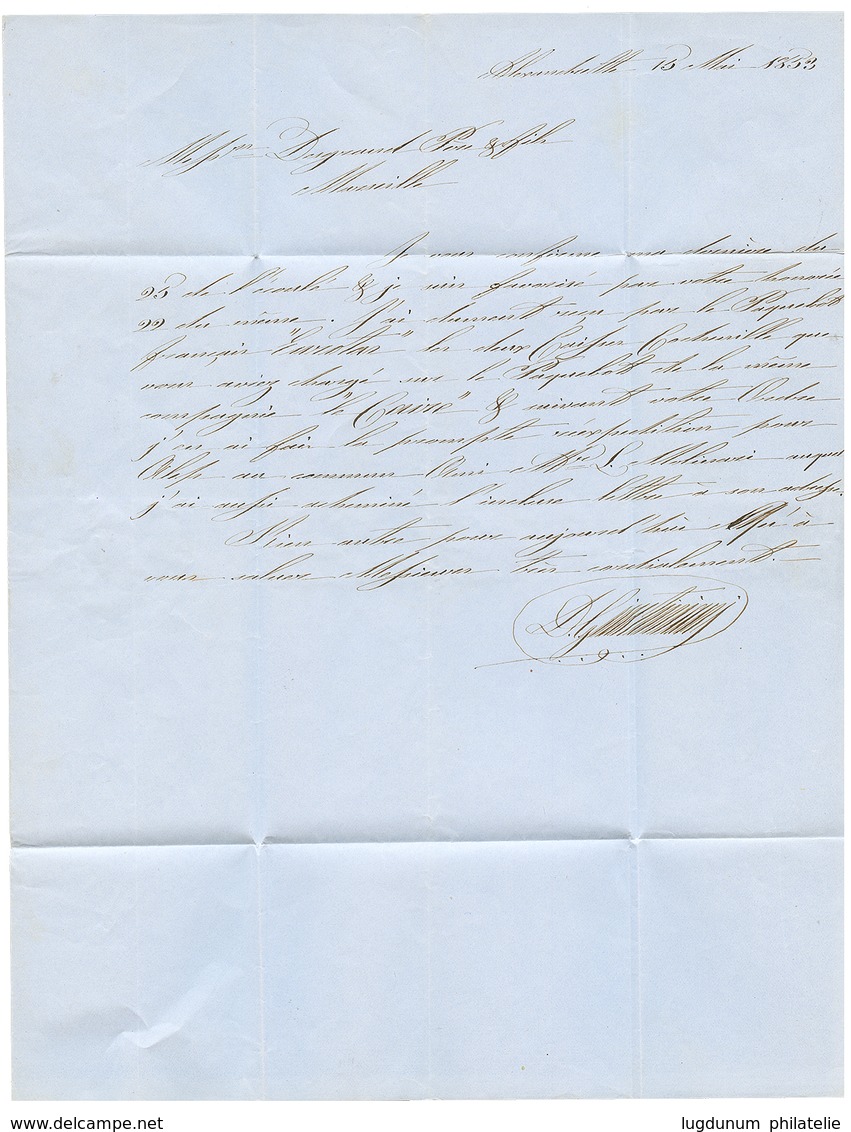 Alexandrette 15 Mai 1853
Messrs Dasgrand Père & fils
Marseille
Je vous confirme ma dernière du
25 de l'écoulé & je suis favorisé par votre honorée
22 du même. J'ai dument reçu par le Paquebot
français "Eurotas" les deux Caisses Cochenille que
vous aviez chargé sur le Paquebot de la même
compagnie "le Caire" & suivant votre Ordre
j'en ai fait la prompte réexpédition pour
Alep au commun Ami Mr L. Molinari auquel
j'ai aussi acheminé l'incluse lettre à son adresse.
Rien autre pour aujourd'hui à
vous saluer Messieurs très cordialement.
www.delcampe.net
lugdunum philatelie